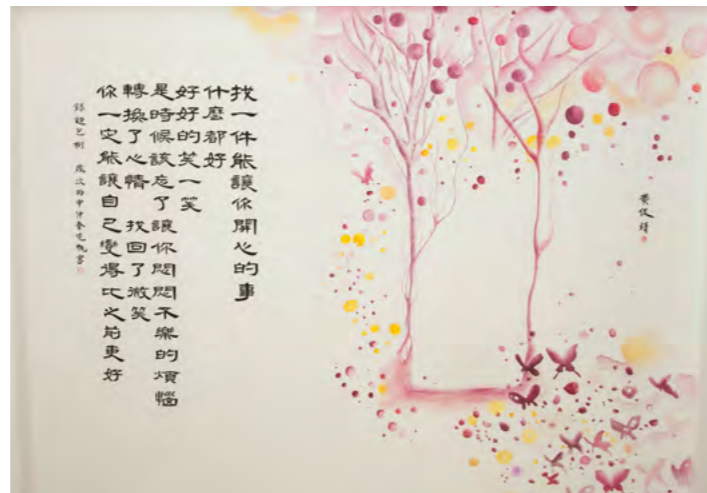 找一件能讓你開心的事
什麼都好
好好的笑一笑
是時候該忘了 讓你悶悶不樂的煩惱
轉換了心情 找回了微笑
你一定能讓自己變得比之前更好
歲次丙申仲春
黃俊